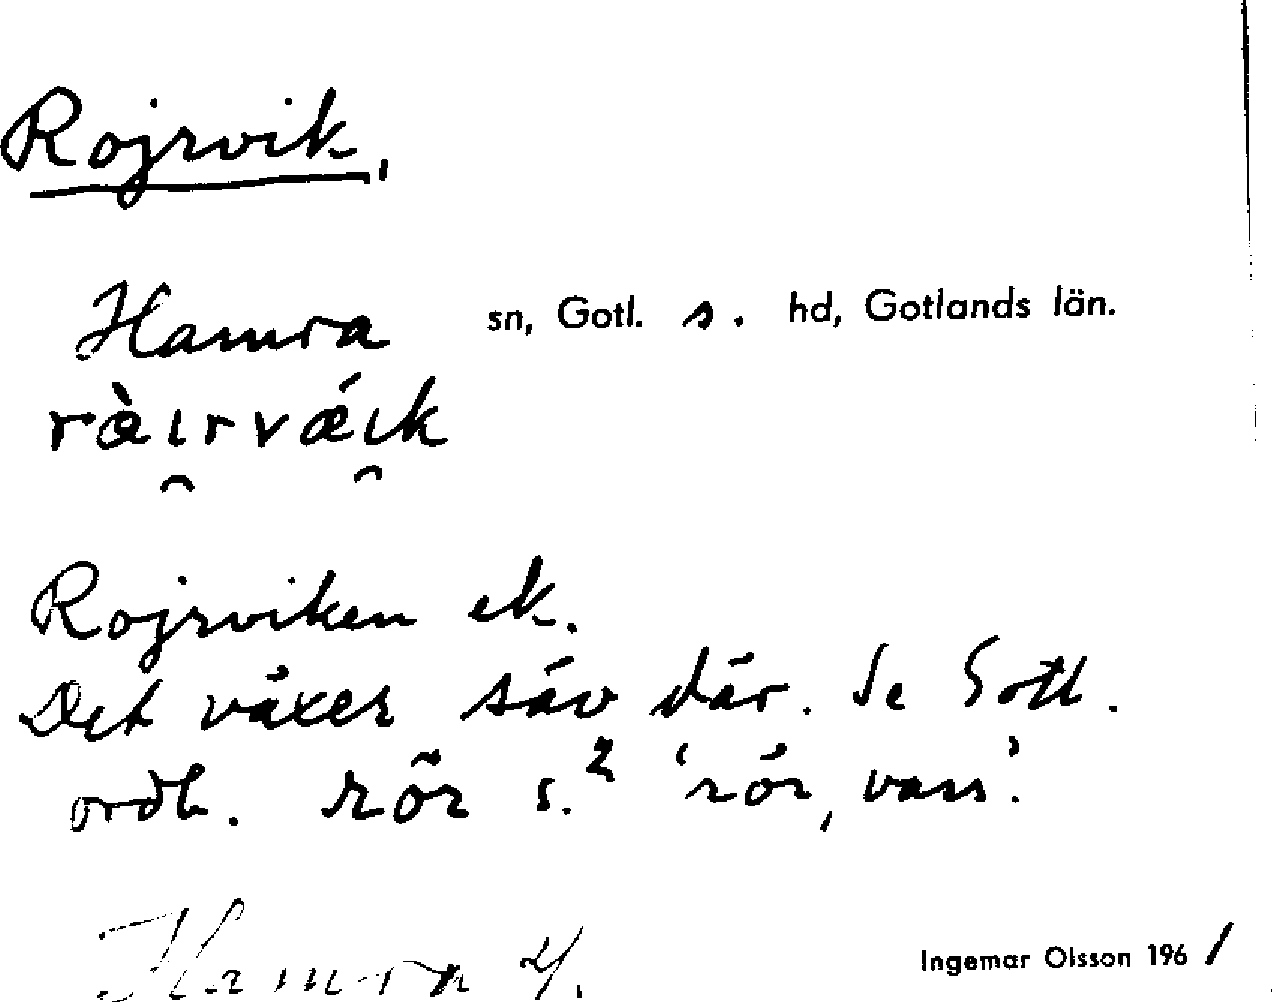 Rojrvik,
Hamra sn, Gotl. s. hd, Gotlands län.
ræ̀ɩ̯rvǽɩ̯k
Rojrviken ek.
Det växer säv där. Se Gotl.
ordb. rör s.² 'rör, vass'.
Hamra 4/.
Ingemar Olsson 1961